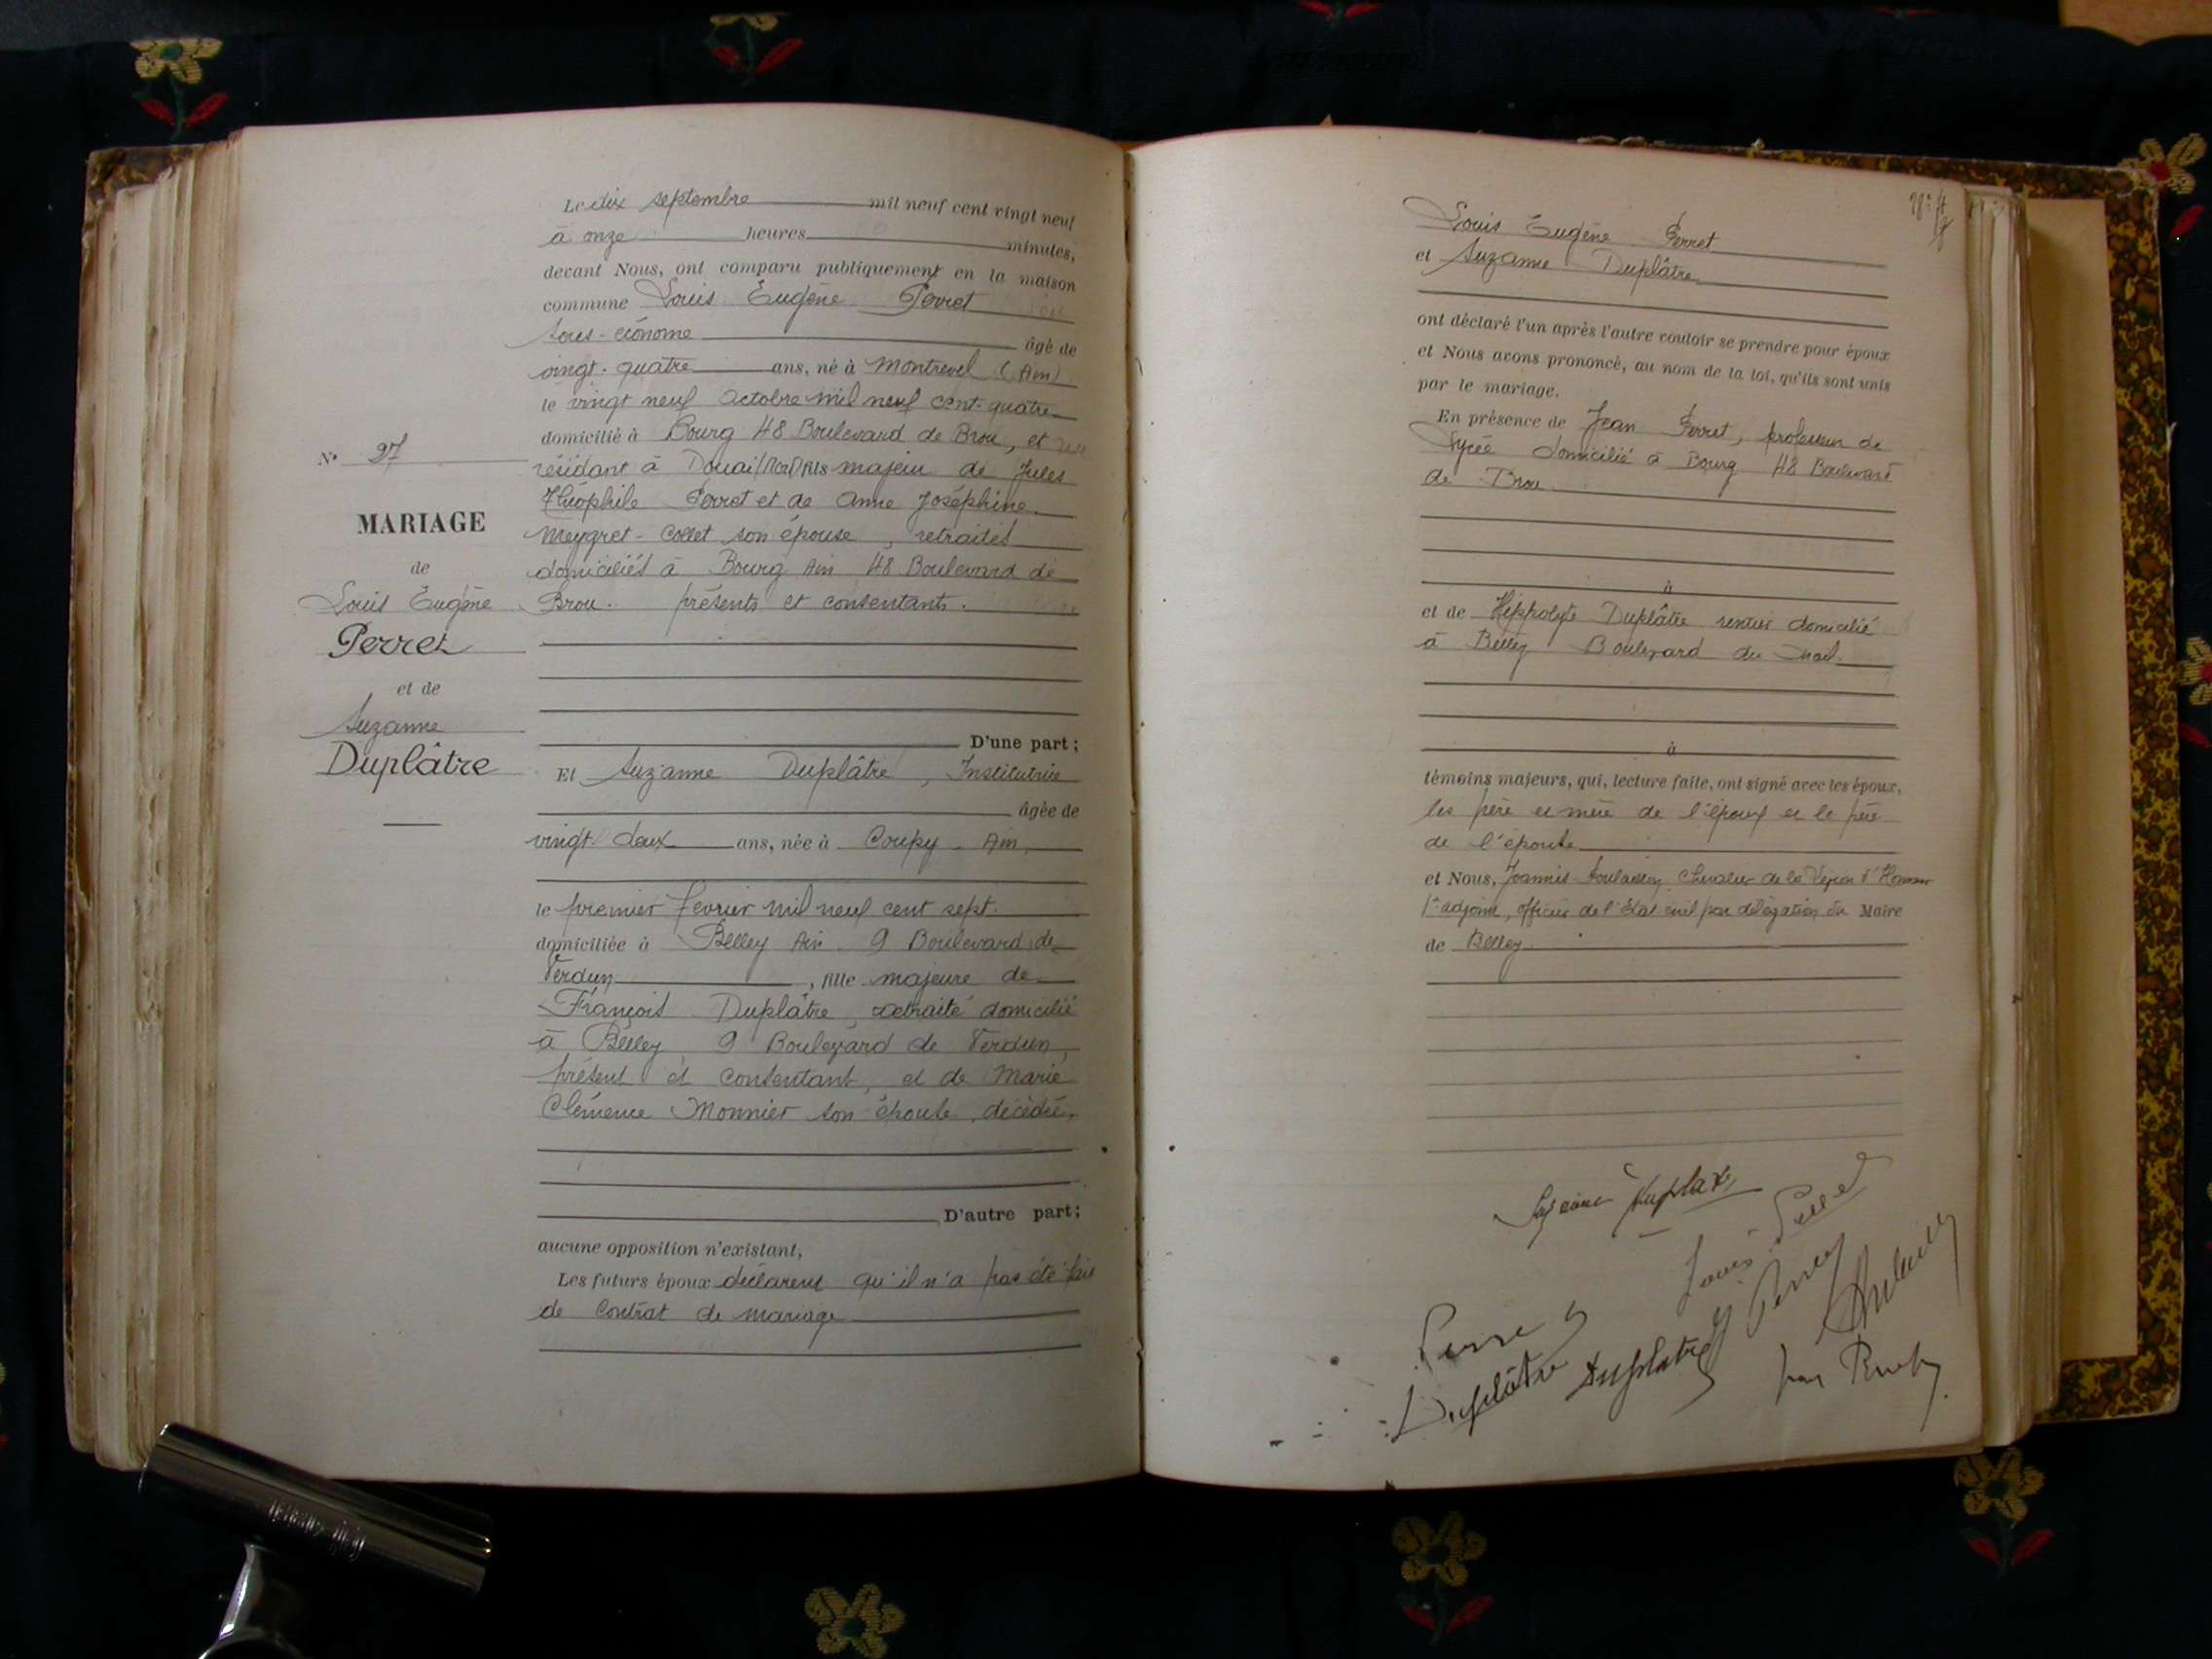 Le dix septembre mil neuf cent vingt neuf
à onze heures minutes,
devant Nous, ont comparu publiquement en la maison
commune Louis Eugène Perret
sous-économe âgé de
vingt-quatre ans, né à Montrevel (Ain)
le vingt neuf octobre mil neuf cent quatre
domicilié à Bourg 48 Boulevard de Brou, et
résidant à Douai (Nord) fils majeur de Jules
Théophile Perret et de Anne Joséphine
Meygret-Collet son épouse, retraités
domiciliés à Bourg Ain 48 Boulevard de
Brou. présents et consentants.
N° 27
MARIAGE
de
Louis Eugène
Perret
et de
Suzanne
Duplâtre
D'une part;
Et Suzanne Duplâtre, Institutrice
âgée de
vingt-deux ans, née à Coupy Ain
le premier février mil neuf cent sept.
domiciliée à Belley Ain 9 Boulevard de
Verdun, fille majeure de
François Duplâtre, retraité domicilié
à Belley 9 Boulevard de Verdun,
présent et consentant, et de Marie
Clémence Monnier son épouse, décédée,
D'autre part;
aucune opposition n'existant,
Les futurs époux déclarent qu'il n'a pas été fait
de contrat de mariage
Louis Eugène Perret
et Suzanne Duplâtre
ont déclaré l'un après l'autre vouloir se prendre pour époux
et Nous avons prononcé, au nom de la loi, qu'ils sont unis
par le mariage.
En présence de Jean Perret, professeur de
Lycée domicilié à Bourg 48 Boulevard
de Brou
à
et de Hippolyte Duplâtre rentier domicilié
à Belley Boulevard du Mail.
à
témoins majeurs, qui, lecture faite, ont signé avec les époux,
les père et mère de l'époux et le père
de l'épouse
et Nous, Joannis Chevalier de la Légion d'Honneur
1er adjoint, officier de l'Etat civil par délégation du Maire
de Belley
Suzanne Duplatre
Louis Perret
J Perret
Perret
Duplâtre Duplatre